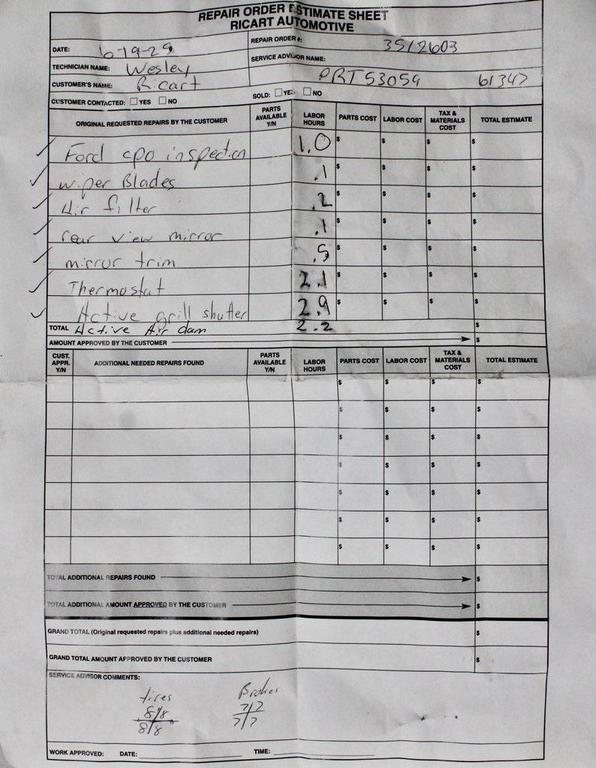 REPAIR ORDER ESTIMATE SHEET
RICART AUTOMOTIVE
DATE: 6-19-25 REPAIR ORDER #: 3512603
TECHNICIAN NAME: Wesley SERVICE ADVISOR NAME:
CUSTOMER'S NAME: Ricart PRT53059 61347
CUSTOMER CONTACTED: YES NO SOLD: YES NO
ORIGINAL REQUESTED REPAIRS BY THE CUSTOMER PARTS AVAILABLE Y/N LABOR HOURS PARTS COST LABOR COST TAX & MATERIALS COST TOTAL ESTIMATE
✓ Ford cpo inspection 1.0 $ $ $ $
✓ wiper Blades .1 $ $ $ $
✓ Air filter .2 $ $ $ $
✓ rear view mirror .1 $ $ $ $
✓ mirror trim .5 $ $ $ $
✓ Thermostat 2.1 $ $ $ $
✓ Active grill shutter 2.9 $ $ $ $
TOTAL Active Air dam 2.2 $
AMOUNT APPROVED BY THE CUSTOMER $
CUST. APPR. Y/N ADDITIONAL NEEDED REPAIRS FOUND PARTS AVAILABLE Y/N LABOR HOURS PARTS COST LABOR COST TAX & MATERIALS COST TOTAL ESTIMATE
$ $ $ $
$ $ $ $
$ $ $ $
$ $ $ $
$ $ $ $
$ $ $ $
$ $ $ $
TOTAL ADDITIONAL REPAIRS FOUND $
TOTAL ADDITIONAL AMOUNT APPROVED BY THE CUSTOMER $
GRAND TOTAL (Original requested repairs plus additional needed repairs) $
GRAND TOTAL AMOUNT APPROVED BY THE CUSTOMER $
SERVICE ADVISOR COMMENTS:
tires Brakes
8/8 7/7
8/8 7/7
WORK APPROVED: DATE: TIME: